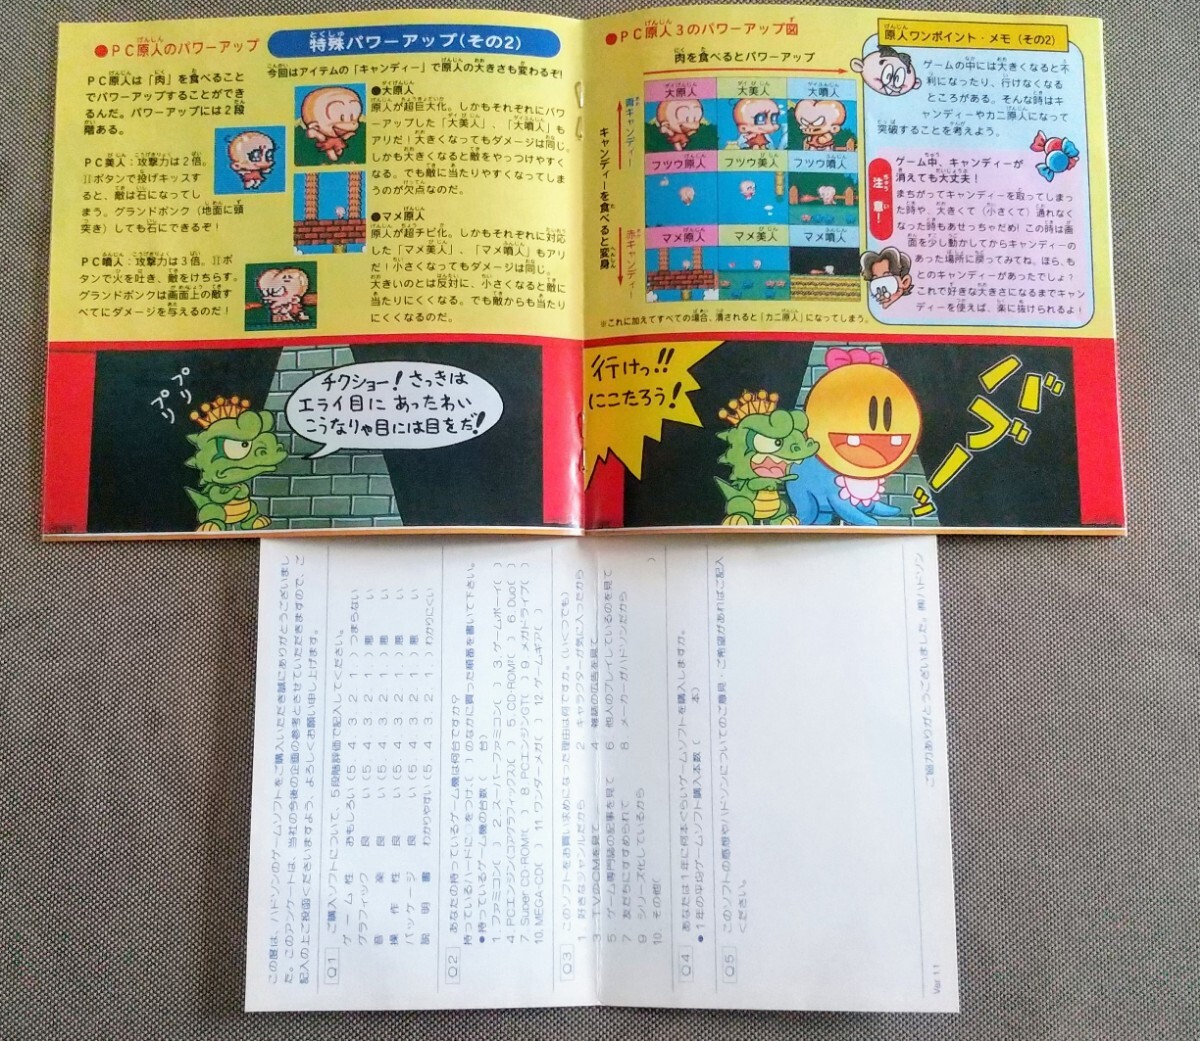 ●PC原人のパワーアップ
PC原人は「肉」を食べること
でパワーアップすることができ
るんだ。パワーアップには2段
階ある。
PC美人：攻撃力は2倍。
IIボタンで投げキッスす
ると、敵は石になってし
まう。グランドボンク（地面に頭
突き）しても石にできるぞ！
PC噴人：攻撃力は3倍。IIボ
タンで火を吐き、敵をけちらす。
グランドボンクは画面上の敵す
べてにダメージを与えるのだ！
特殊パワーアップ(その2)
今回はアイテムの「キャンディー」で原人の大きさも変わるぞ！
●大原人
原人が超巨大化。しかもそれぞれにパワ
ーアップした「大美人」、「大噴人」も
アリだ！大きくなってもダメージは同じ。
しかも大きくなると敵をやっつけやすく
なる。でも敵に当たりやすくなってしまう
のが欠点なのだ。
●マメ原人
原人が超チビ化。しかもそれぞれに対応
した「マメ美人」、「マメ噴人」もアリ
だ！小さくなってもダメージは同じ。
大きいのとは反対に、小さくなると敵に
当たりにくくなる。でも敵からも当たり
にくくなるのだ。
●PC原人3のパワーアップ図
肉を食べるとパワーアップ
青キャンディー
キャンディーを食べると変身
赤キャンディー
大原人 大美人 大噴人
フツウ原人 フツウ美人 フツウ噴人
マメ原人 マメ美人 マメ噴人
※これに加えてすべての場合、潰されると「カニ原人」になってしまう。
原人ワンポイント・メモ（その2）
ゲームの中には大きくなると不
利になったり、行けなくなる
ところがある。そんな時はキ
ャンディーやカニ原人になって
突破することを考えよう。
注意！
ゲーム中、キャンディーが
消えても大丈夫！
まちがってキャンディーを取ってしまっ
た時や、大きくて（小さくて）通れなく
なった時もあせっちゃだめ！この時は画
面を少し動かしてからキャンディーの
あった場所に戻ってみてね。ほら、も
とのキャンディーがあったでしょ？
これで好きな大きさになるまでキャン
ディーを使えば、楽に抜けられるよ！
プリプリ
チクショー！さっきは
エライ目にあったわい
こうなりゃ目には目をだ！
行けっ!!
にこたろう！
バブーッ
この度は、ハドソンのゲームソフトをご購入いただき誠にありがとうございまし
た。このアンケートは、当社の今後の企画の参考とさせていただきますので、ご
記入の上ご投函くださいますよう、よろしくお願い申し上げます。
Q1 ご購入ソフトについて、5段階評価で記入してください。
ゲーム性 おもしろい(5. 4. 3. 2. 1.)つまらない
グラフィック 良い(5. 4. 3. 2. 1.)悪い
音楽 良い(5. 4. 3. 2. 1.)悪い
操作性 良い(5. 4. 3. 2. 1.)悪い
パッケージ 良い(5. 4. 3. 2. 1.)悪い
説明書 わかりやすい(5. 4. 3. 2. 1.)わかりにくい
Q2 あなたの持っているゲーム機は何台ですか？
持っているハードに○をつけ、( )のなかに買った順番を書いて下さい。
●持っているゲーム機の台数( 台)
1. ファミコン( ) 2. スーパーファミコン( ) 3. ゲームボーイ( )
4. PCエンジン(コアグラフィックス)( ) 5. CD-ROM²( ) 6. Duo( )
7. Super CD-ROM²( ) 8. PCエンジンGT( ) 9. メガドライブ( )
10. MEGA-CD( ) 11. ワンダーメガ( ) 12. ゲームギア( )
Q3 このソフトをお買い求めになった理由は何ですか。(いくつでも)
1 好きなジャンルだから 2. キャラクターが気に入ったから
3 TVのCMを見て 4. 雑誌の広告を見て
5 ゲーム専門誌の記事を見て 6. 他人のプレイしているのを見て
7 友だちにすすめられて 8. メーカーがハドソンだから
9 シリーズ化しているから
10. その他( )
Q4 あなたは1年に何本ぐらいゲームソフトを購入しますか。
●1年の平均ゲームソフト購入本数( 本)
Q5 このソフトの感想やハドソンについてのご意見・ご希望があればご記入
ください。
ご協力ありがとうございました。㈱ハドソン
Ver. 1.1